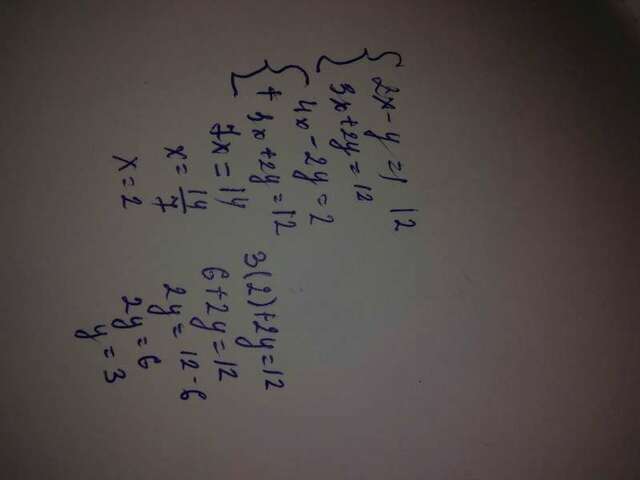 2x - y = 1 |2
3x + 2y = 12
4x - 2y = 2
+ 3x + 2y = 12
7x = 14
x = 14/7
x = 2
3(2) + 2y = 12
6 + 2y = 12
2y = 12 - 6
2y = 6
y = 3